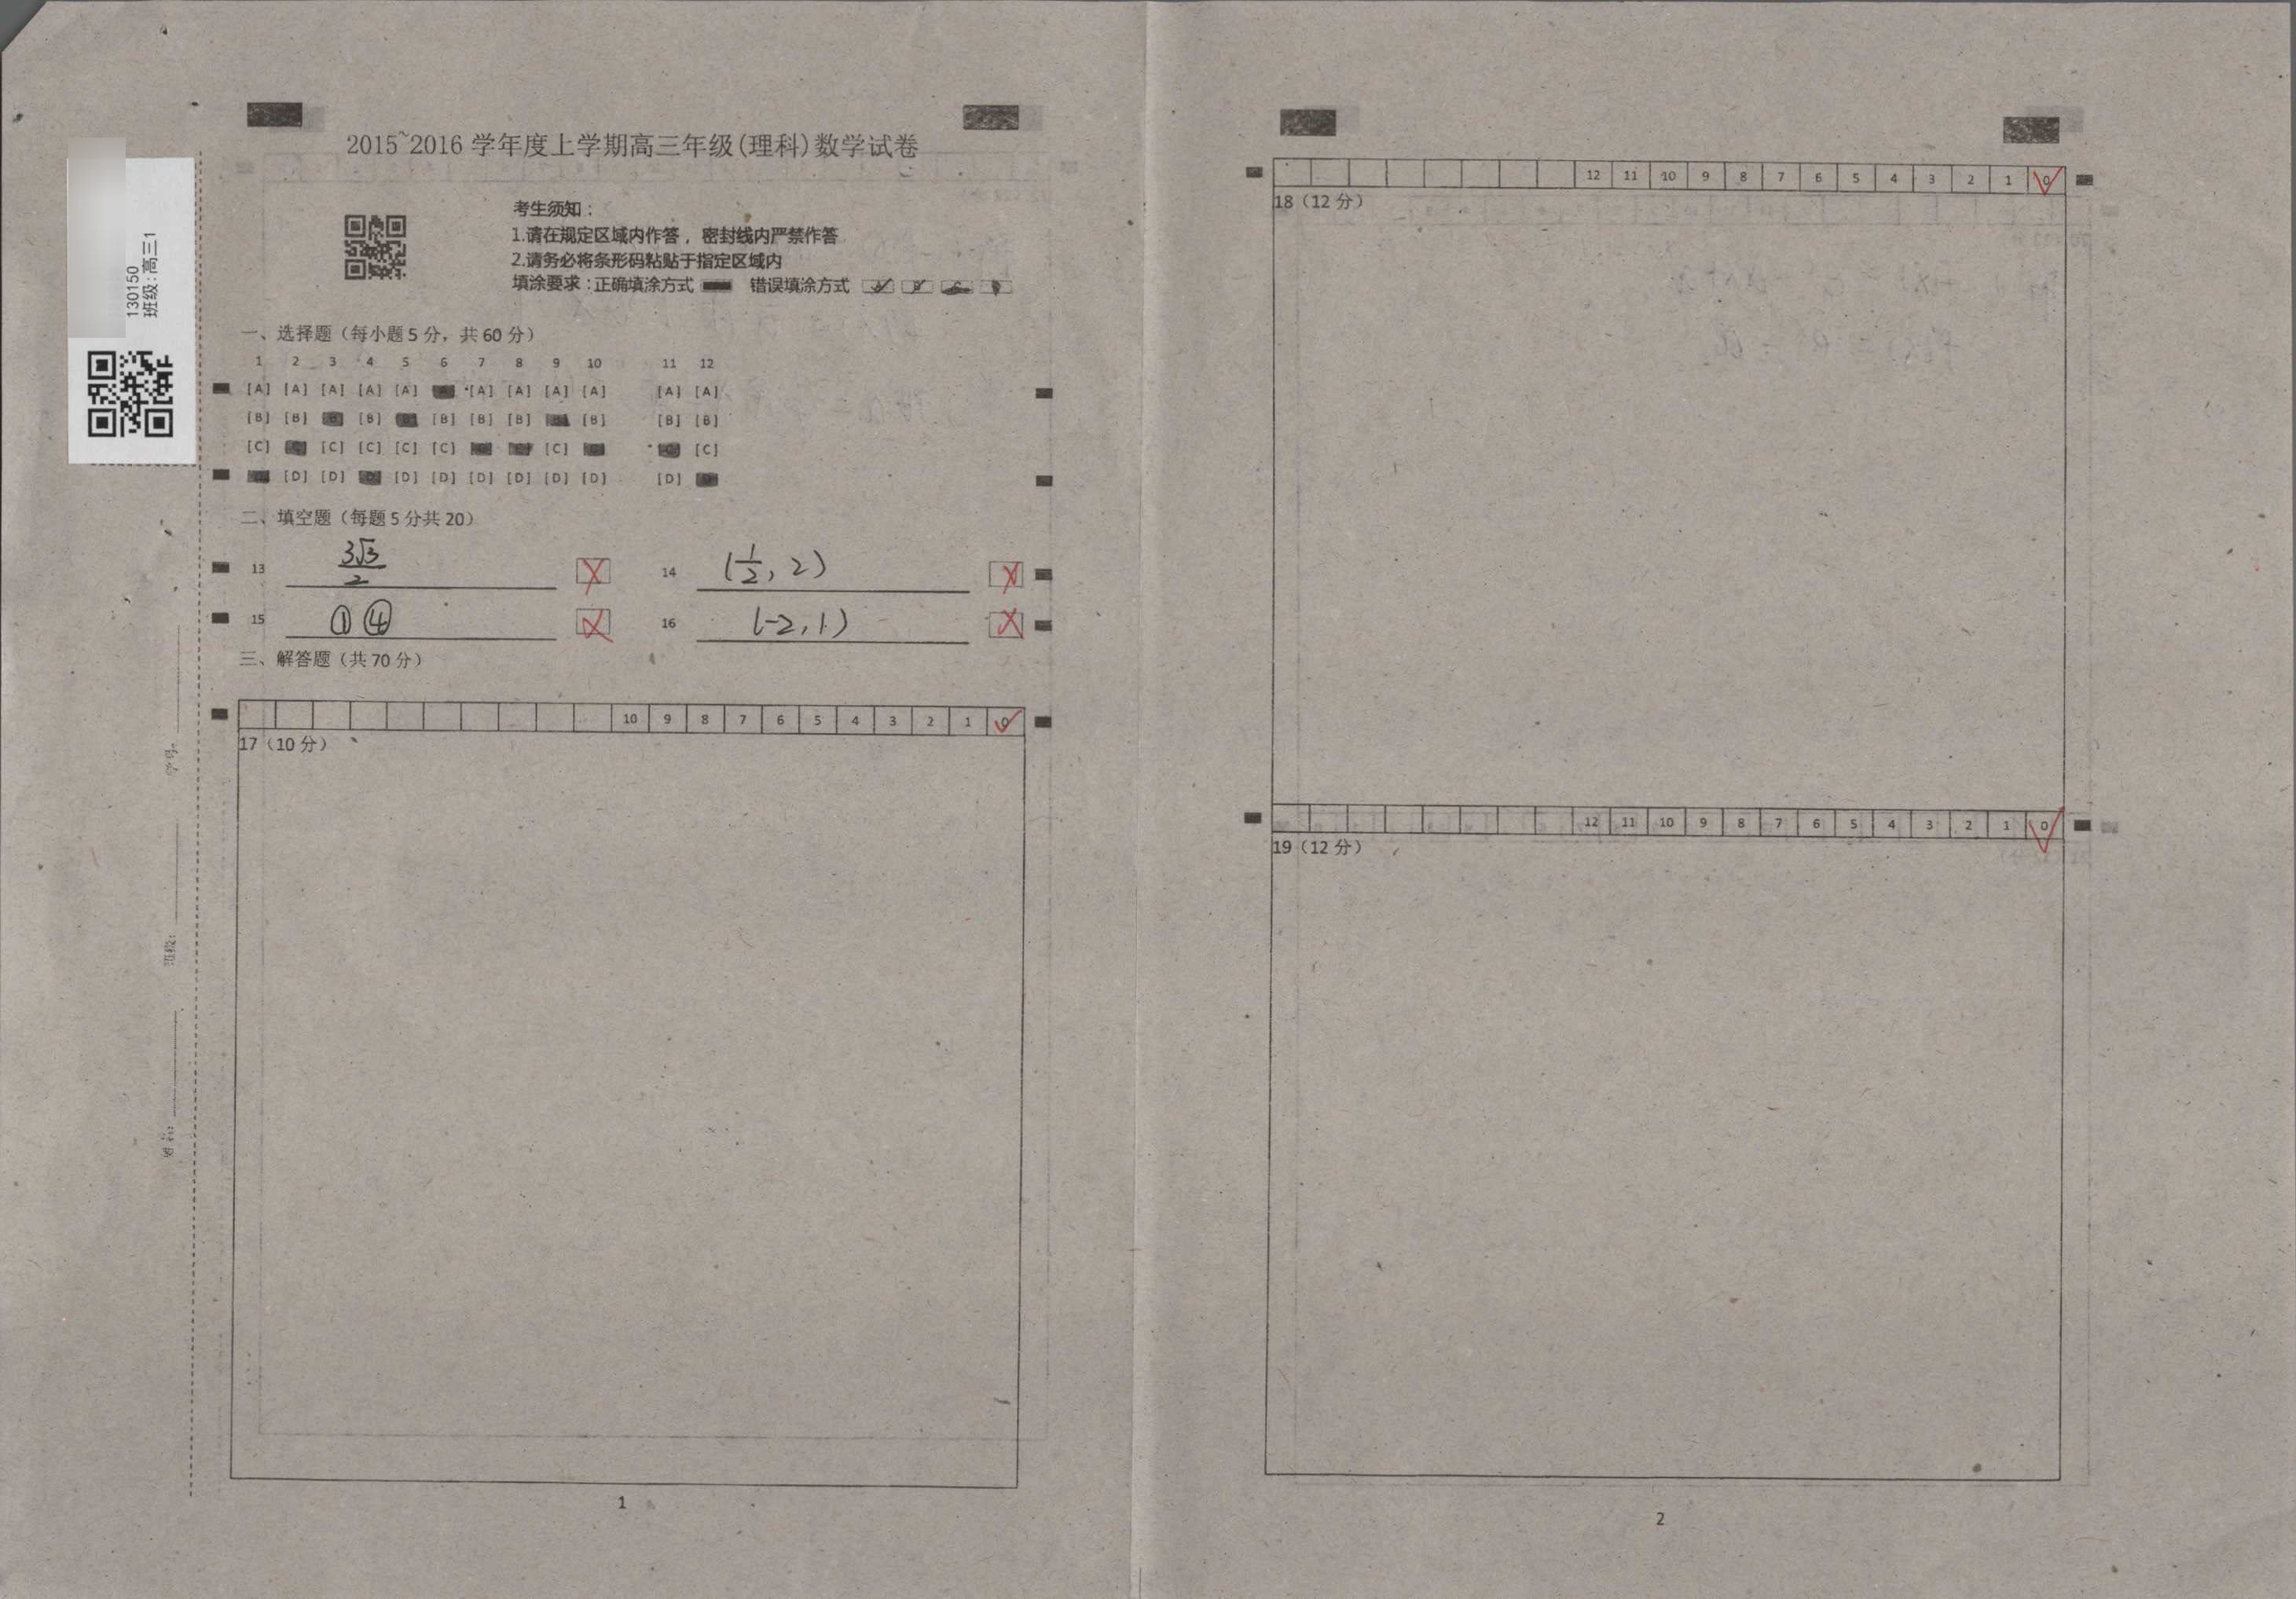 2015~2016 学年度上学期高三年级(理科)数学试卷
130150
班级:高三1
考生须知：
1.请在规定区域内作答，密封线内严禁作答
2.请务必将条形码粘贴于指定区域内
填涂要求：正确填涂方式 错误填涂方式
一、选择题（每小题 5 分，共 60 分）
1 2 3 4 5 6 7 8 9 10 11 12
[A] [A] [A] [A] [A] [A] [A] [A] [A] [A] [A]
[B] [B] [B] [B] [B] [B] [B] [B] [B]
[C] [C] [C] [C] [C] [C] [C]
[D] [D] [D] [D] [D] [D] [D] [D] [D]
二、填空题（每题 5 分共 20）
13 3√3/2 14 (1/2, 2)
15 ①④ 16 (-2,1)
三、解答题（共 70 分）
10 9 8 7 6 5 4 3 2 1 0
17（10 分）
学号：
班级：
姓名：
1
12 11 10 9 8 7 6 5 4 3 2 1 0
18（12 分）
12 11 10 9 8 7 6 5 4 3 2 1 0
19（12 分）
2